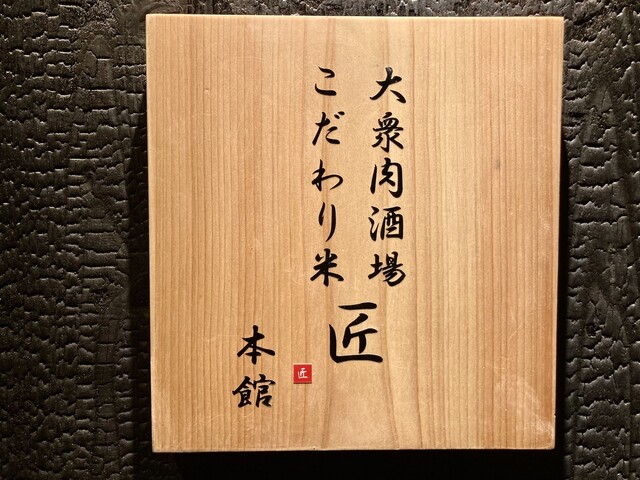 大衆肉酒場
こだわり米
匠
匠
本館